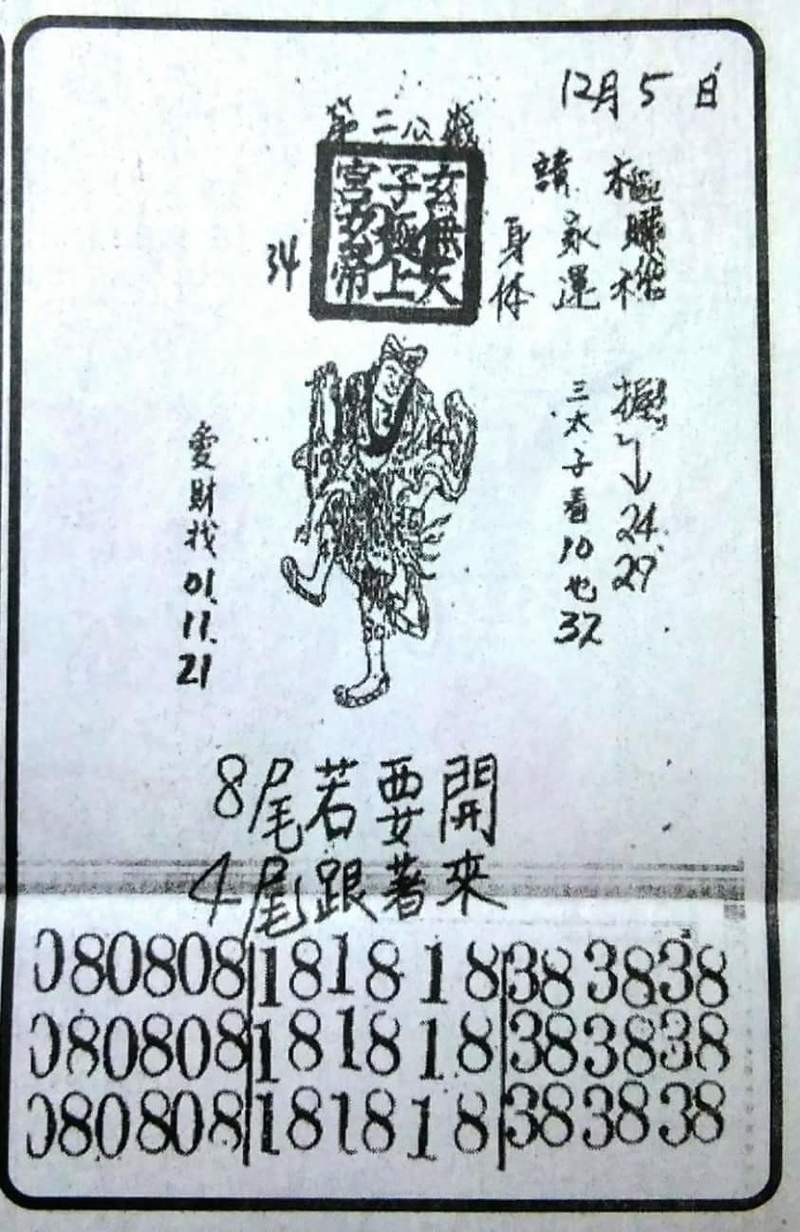 12月5日
第二公籤
玄無天
子極上
宮玄帝
34
身体
請家運
24.
29
三太子看10也
32
愛財找01.
11.
21
8尾若要開
4尾跟著來
080808 181818 383838
080808 181818 383838
080808 181818 383838